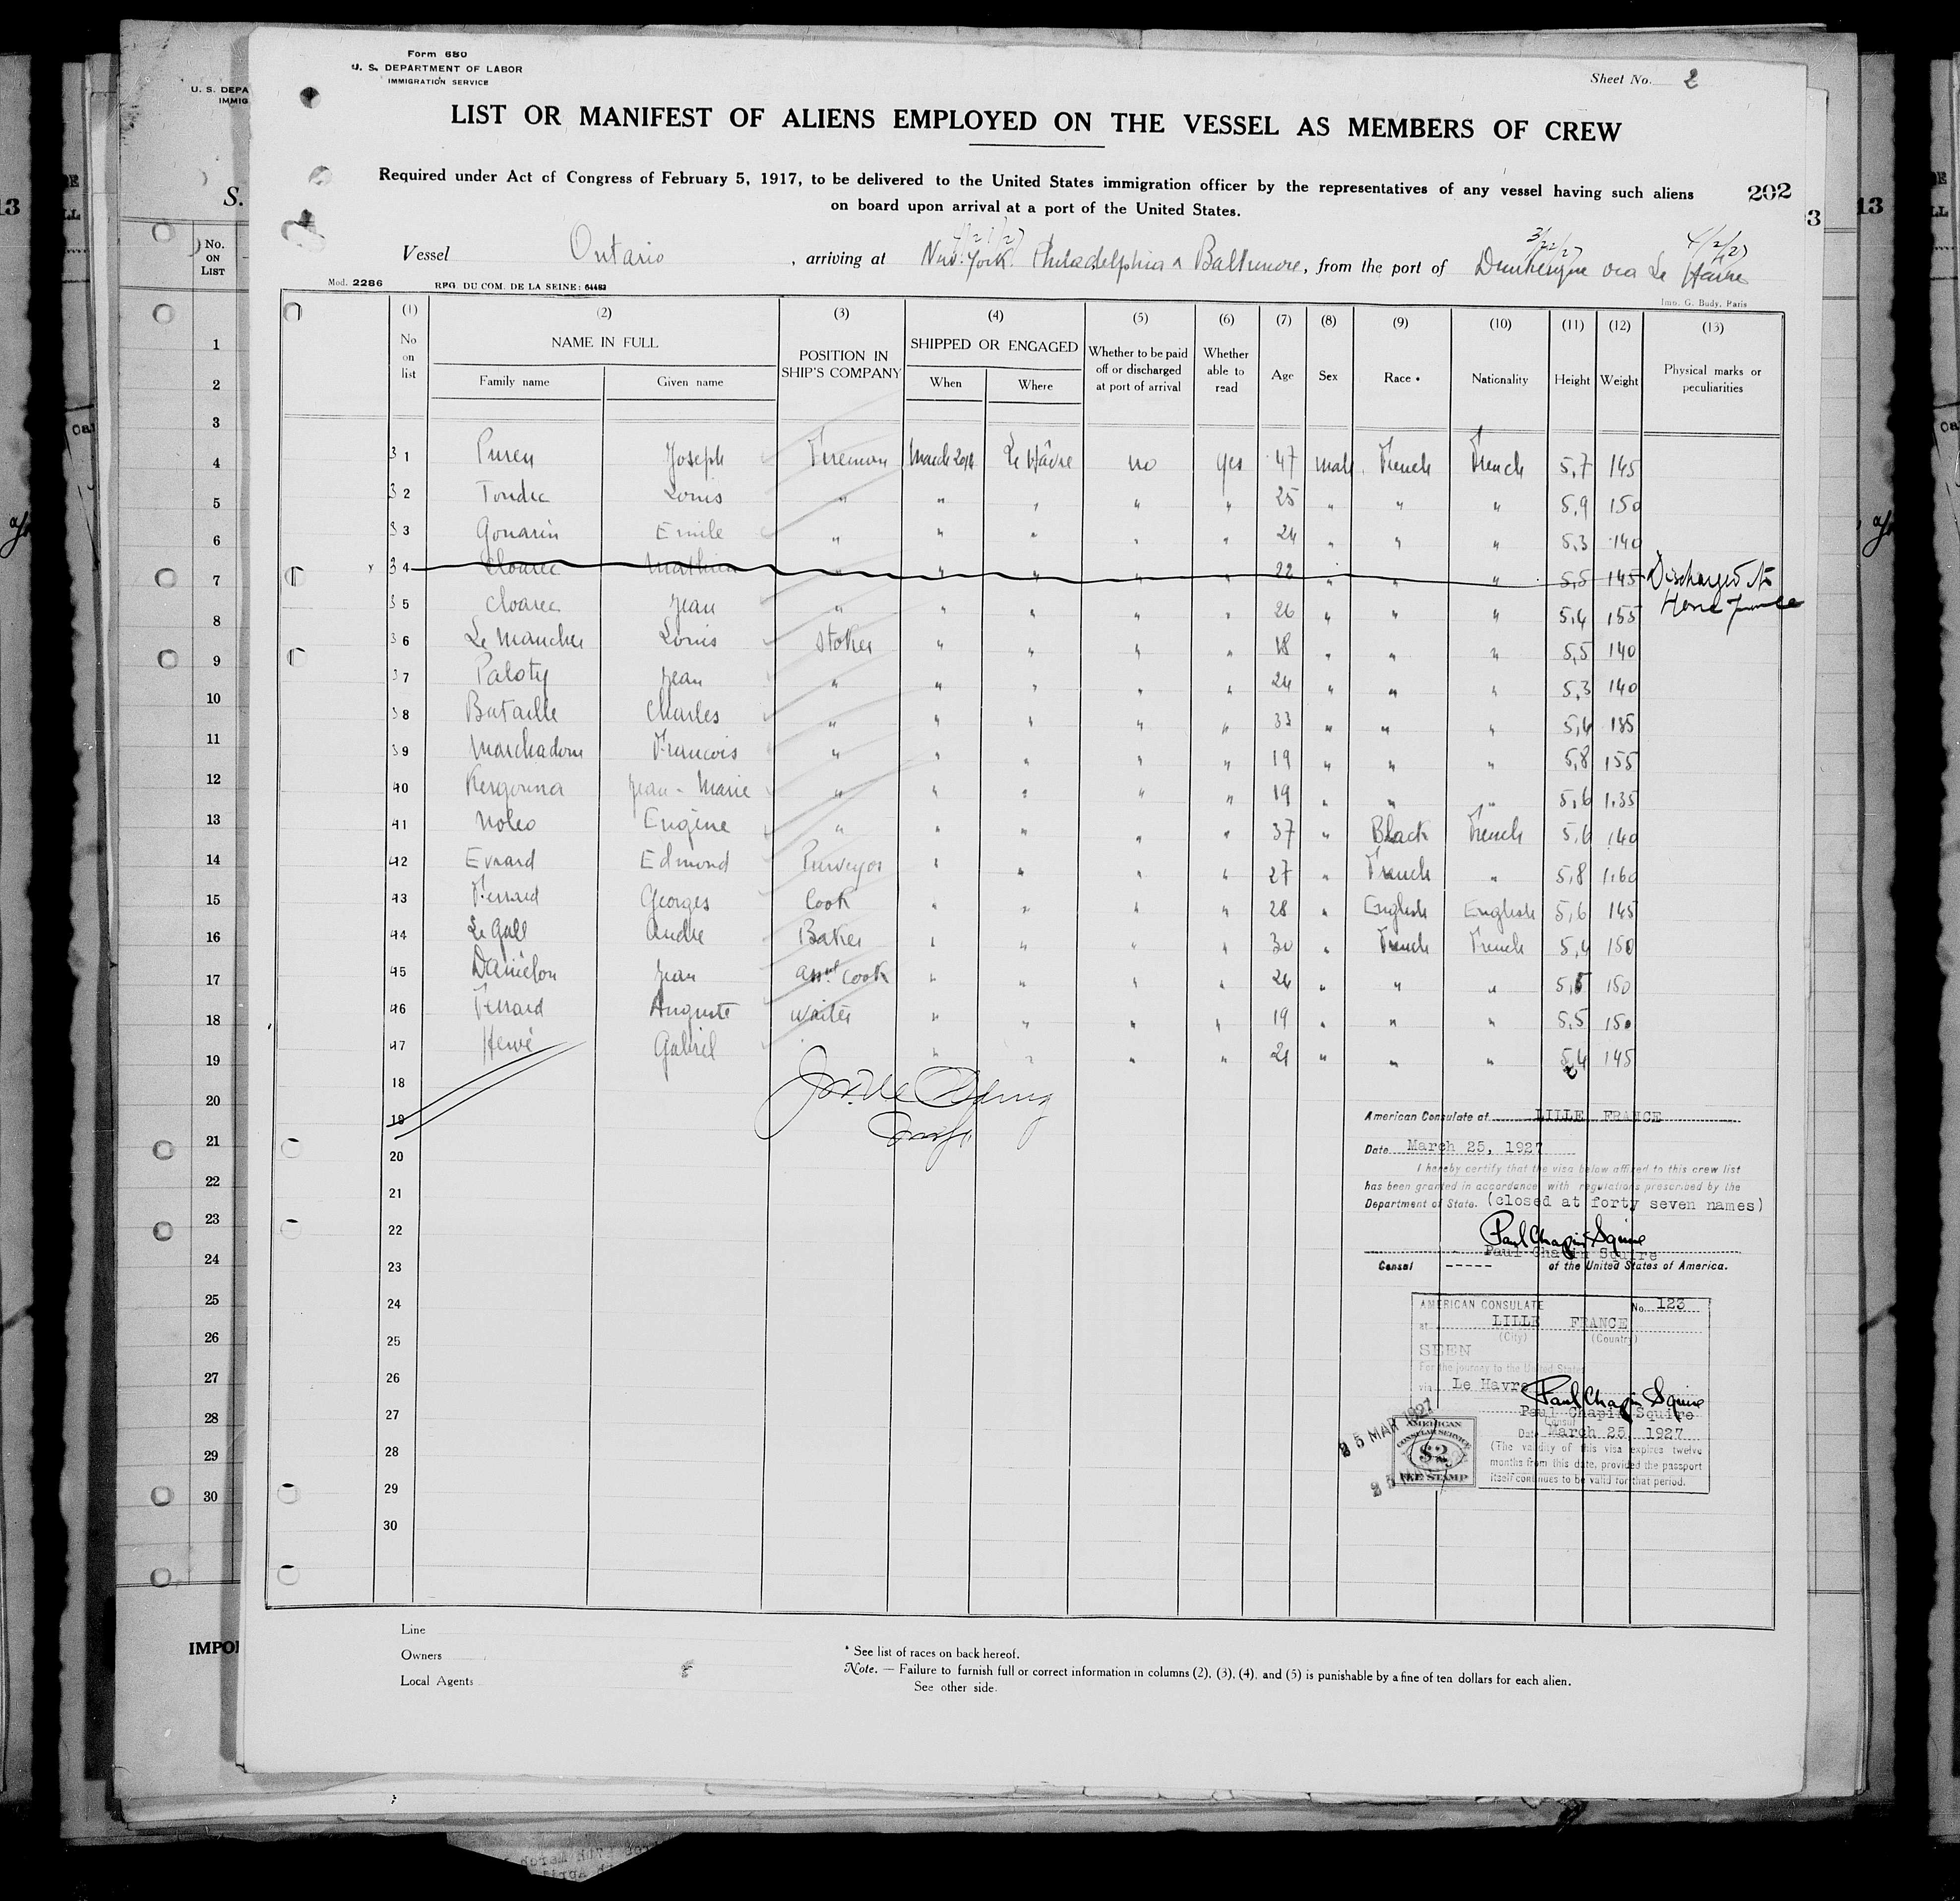 Form 680
U. S. DEPARTMENT OF LABOR
IMMIGRATION SERVICE
Sheet No. 2
LIST OR MANIFEST OF ALIENS EMPLOYED ON THE VESSEL AS MEMBERS OF CREW
Required under Act of Congress of February 5, 1917, to be delivered to the United States immigration officer by the representatives of any vessel having such aliens
on board upon arrival at a port of the United States.
202
3/22/27 4/2/27
Vessel Ontario, arriving at New York Philadelphia Baltimore, from the port of Dunkerque via Le Havre
Mod. 2286 REG. DU COM. DE LA SEINE: 64483
Imp. G. Budy, Paris
(1) (2) (3) (4) (5) (6) (7) (8) (9) (10) (11) (12) (13)
No on list NAME IN FULL Family name Given name POSITION IN SHIP'S COMPANY SHIPPED OR ENGAGED When Where Whether to be paid off or discharged at port of arrival Whether able to read Age Sex Race * Nationality Height Weight Physical marks or peculiarities
31 Puren Joseph Fireman March Le Hâvre no yes 47 male French French 5,7 145
32 Louis " " " " " 25 " " " 5,9 150
33 Gouarin Emile " " " " " 24 " " " 5,3 140
34 Cloarec Mathieu " " " " " 22 " " " 5,5 145 Discharged at
35 Cloarec Jean " " " " " 26 " " " 5,4 155
36 Louis Stoker " " " " 18 " " " 5,5 140
37 Paloty Jean " " " " " 24 " " " 5,3 140
38 Bataille Charles " " " " " 33 " " " 5,4 135
39 Francois " " " " " 19 " " " 5,8 155
40 Jean-Marie " " " " " 19 " " " 5,6 135
41 Noleo Eugène " " " " " 37 " Black French 5,6 140
42 Evrard Edmond Purveyor " " " " 27 " French " 5,8 160
43 Georges Cook " " " " 28 " English English 5,6 145
44 Le Gall André Baker " " " " 30 " French French 5,4 150
45 Daniélou Jean asst cook " " " " 24 " " " 5,5 150
46 Auguste Waiter " " " " 19 " " " 5,5 150
47 Hervé Gabriel " " " " 21 " " " 5,4 145
18
19
20
21
22
23
24
25
26
27
28
29
30
American Consulate at LILLE FRANCE
Date March 25, 1927
I hereby certify that the visa below affixed to this crew list
has been granted in accordance with regulations prescribed by the
Department of State. (closed at forty seven names)
Paul Chapin Squire
Paul Chapin Squire
Consul ----- of the United States of America.
AMERICAN CONSULATE No. 123
at LILLE FRANCE
(City) (Country)
SEEN
For the journey to the United States
via Le Havre
Paul Chapin Squire
Paul Chapin Squire
Consul
Date March 25, 1927
(The validity of this visa expires twelve
months from this date, provided the passport
itself continues to be valid for that period.
25 MAR 1927
AMERICAN
CONSULAR SERVICE
$2
FEE STAMP
Line
Owners
Local Agents
* See list of races on back hereof.
Note. — Failure to furnish full or correct information in columns (2), (3), (4), and (5) is punishable by a fine of ten dollars for each alien.
See other side.
U. S. DEPA
IMMIG
S.
No.
ON
LIST
1
2
3
4
5
6
7
8
9
10
11
12
13
14
15
16
17
18
19
20
21
22
23
24
25
26
27
28
29
30
IMPO
13